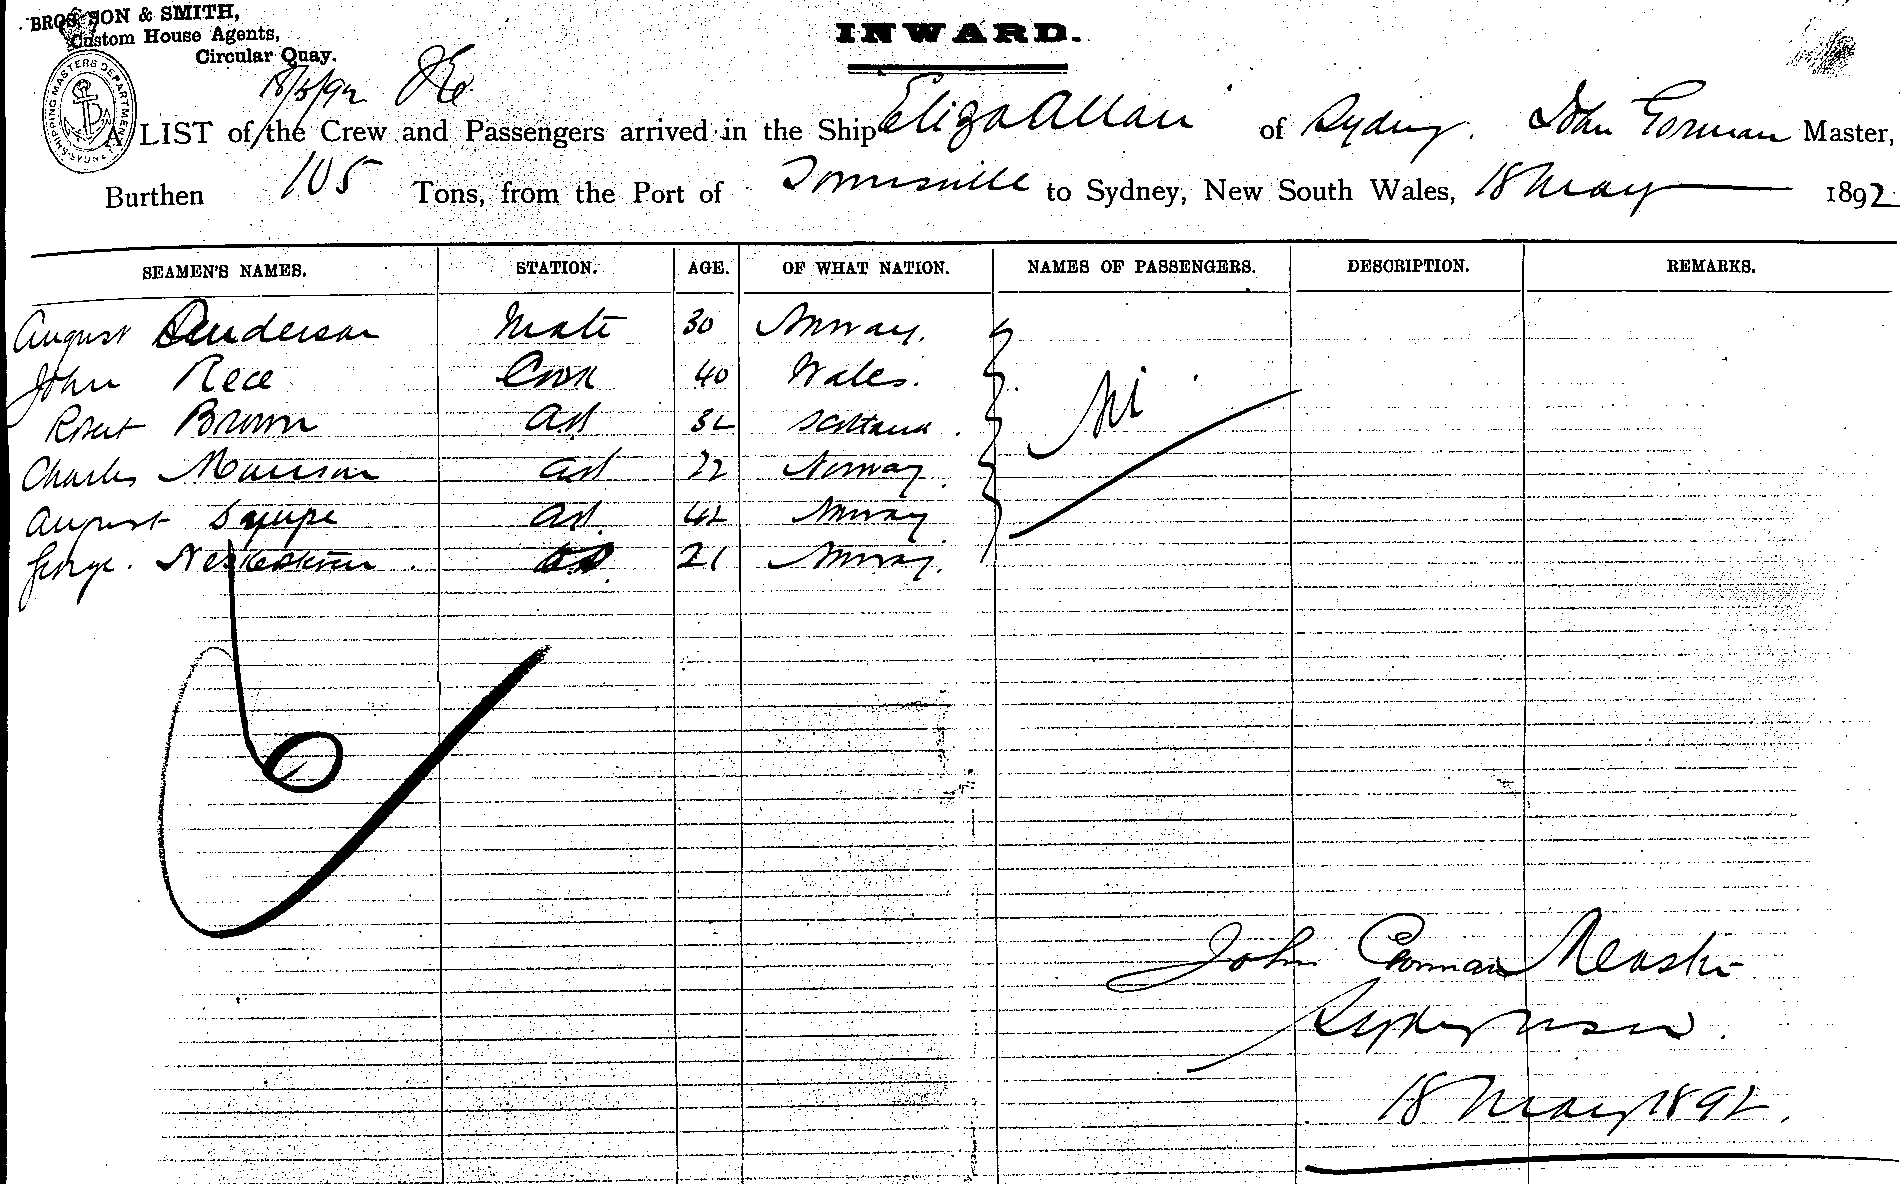 BROS SON & SMITH,
Custom House Agents,
Circular Quay.
INWARD.
18/5/92
A LIST of the Crew and Passengers arrived in the Ship Eliza Allan of Sydney. John Gorman Master,
Burthen 105 Tons, from the Port of Townsville to Sydney, New South Wales, 18 May 1892
SEAMEN'S NAMES. STATION. AGE. OF WHAT NATION. NAMES OF PASSENGERS. DESCRIPTION. REMARKS.
August Anderson Mate 30 Norway.
John Rece Cook 40 Wales.
Robert Brown AS 32 Scotland. Nil
Charles Morrison AS 22 Norway.
August AS 42 Norway
George. AS 21 Norway.
John Gorman Master
Sydney NSW.
18 May 1892.